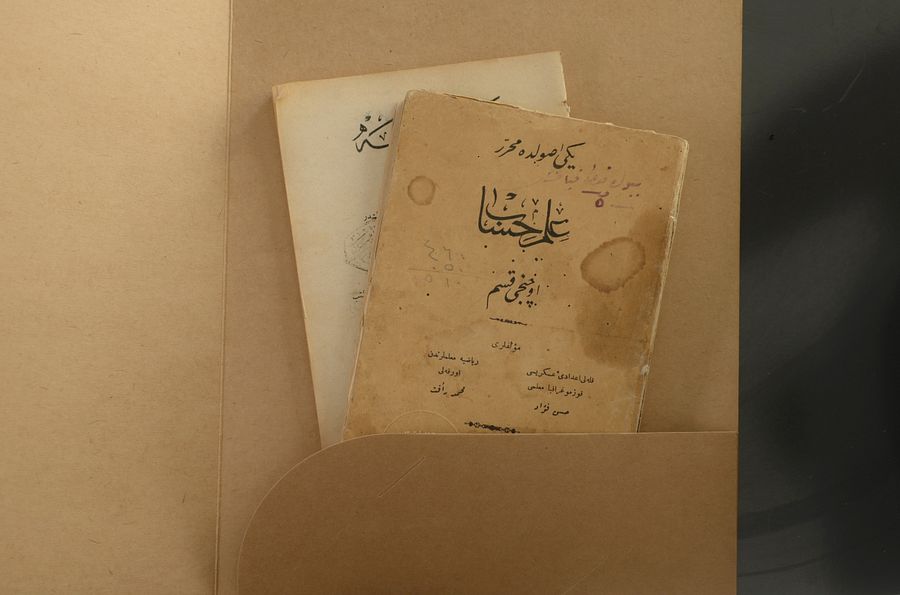 يكى اصولده محرّر
علم حساب
اوچنجى قسم
مؤلفلرى
قله‌لى اعدادئ عسكريسى
قوزموغرافيا معلمى
حسن فؤاد
رياضيه معلملرندن
اورفه‌لى
محمد رأفت
٤٦٠
٥٠
٥١٠